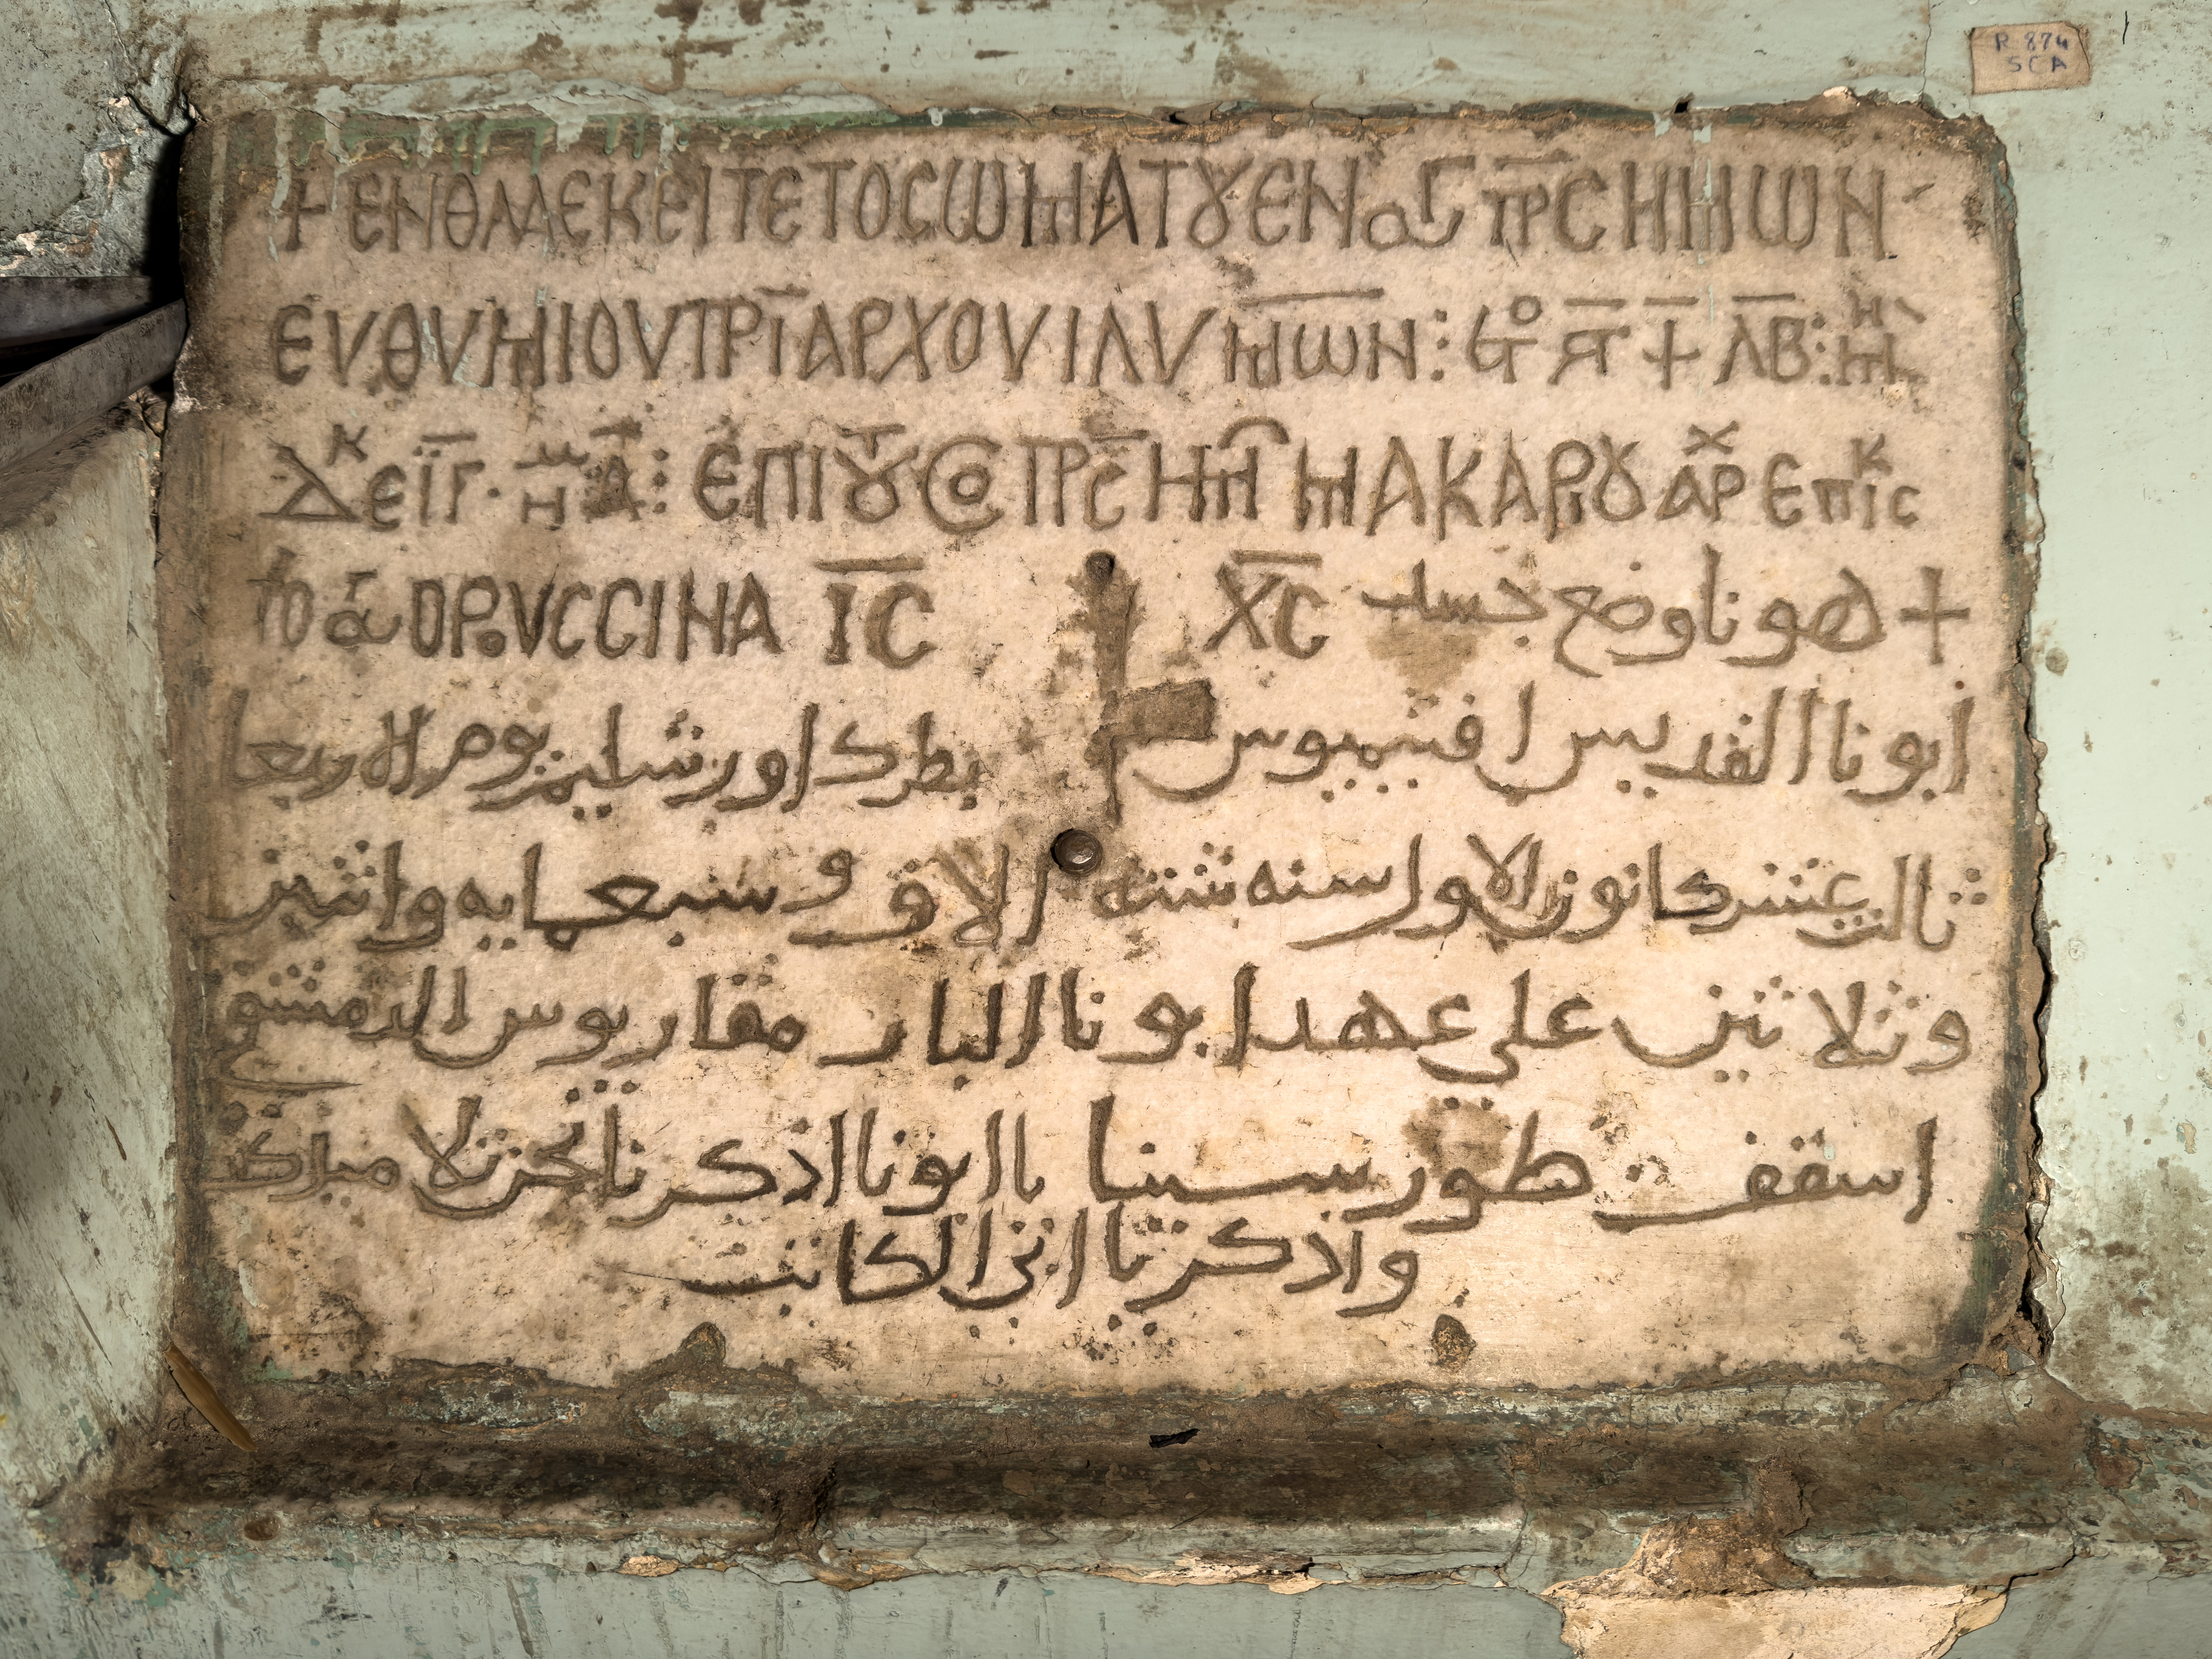 R 874
SCA
+ ΕΝΘΑΔΕ ΚΕΙΤΕ ΤΟ CΩΜΑ ΤΟΥ ΕΝ ΑΓ ΠΡC ΗΜΩΝ
ΕΥΘΥΜΙΟΥ ΠΡΙΑΡΧΟΥ ΙΛΥΜΩΝ :
ΕΠΙ ΤΟΥ ΠΡC ΗΜ ΜΑΚΑΡΙΟΥ ΑΡΧ ΕΠΙCΚ
ΤΟ ΑΓ ΟΡΟΥC CΙΝΑ ΙC ΧC
+ هونا وضع جسد
ابونا القديس افتيميوس بطرك اورشليم يوم الاربعا
ثالث عشر كانون الاول سنه سته الاف و سبعمايه واثنين
وثلاثين علي عهد ابونا البار مقاريوس الدمشقي
اسقف طور سينا يا ابونا اذكرنا نحن تلاميذك
واذكر يا ابن الكاتب